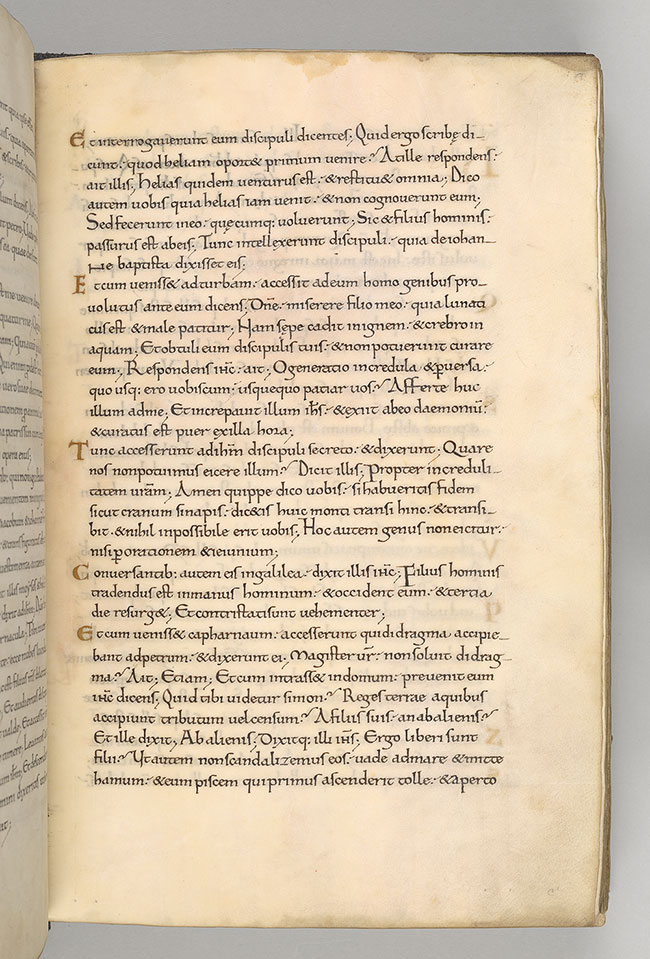 Et interrogaverunt eum discipuli dicentes; Quid ergo scribę di-
cunt· quod heliam oport& primum venire? At ille respondens·
ait illis; Helias quidem venturus est· & restitu& omnia; Dico
autem uobis quia helias iam uenit· & non cognoverunt eum;
Sed fecerunt in eo· quęcumq; voluerunt; Sic & filius hominis·
passurus est ab eis; Tunc intellexerunt discipuli· quia de iohan-
ne baptista dixisset eis;
Et cum veniss& ad turbam· accessit ad eum homo genibus pro-
volutus ante eum dicens; Dñe· miserere filio meo· quia lunati
cus est & male patitur; Nam sępe cadit in ignem· & crebro in
aquam; Et obtuli eum discipulis tuis· & non potuerunt curare
eum; Respondens ihc· ait; O generatio incredula & pversa·
quo usq; ero vobiscum· usquequo patiar vos? Afferte huc
illum ad me; Et increpavit illum ihs· & exiit ab eo daemoniū·
& curatus est puer ex illa hora;
Tunc accesserunt ad ihm discipuli secreto· & dixerunt; Quare
nos non potuimus eicere illum? Dicit illis; Propter increduli-
tatem uram; Amen quippe dico vobis· si habueritis fidem
sicut granum sinapis· dic&is huic monti transi hinc· & transi-
bit· & nihil inpossibile erit vobis; Hoc autem genus non eicitur·
nisi p orationem & ieiunium;
Conversantib; autem eis in galilea· dixit illis ihc; Filius hominis
tradendus est in manus hominum· & occident eum· & tertia
die resurg&; Et contristati sunt vehementer;
Et cum veniss& capharnaum· accesserunt qui didragma accipie-
bant ad petrum· & dixerunt ei; Magister ur· non soluit didrag-
ma? Ait; Etiam; Et cum intrass& in domum· prevenit eum
ihc dicens; Quid tibi videtur simon? Reges terrae a quibus
accipiunt tributum vel censum? A filiis suis· an ab alienis?
Et ille dixit; Ab alienis; Dixitq; illi ihs; Ergo liberi sunt
filii? Ut autem non scandalizemus eos· vade ad mare & mitte
hamum· & eum piscem qui primus ascenderit tolle· & aperto